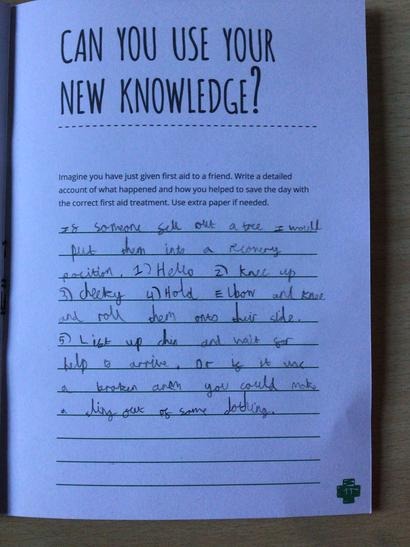 CAN YOU USE YOUR
NEW KNOWLEDGE?
Imagine you have just given first aid to a friend. Write a detailed
account of what happened and how you helped to save the day with
the correct first aid treatment. Use extra paper if needed.
If someone fell out a tree I would
put them into a recovery
position. 1) Hello 2) knee up
3) cheeky 4) Hold Elbow and knee
and roll them onto their side.
5) Lift up chin and wait for
help to arrive. Or if it was
a broken arm you could make
a sling out of some clothing.